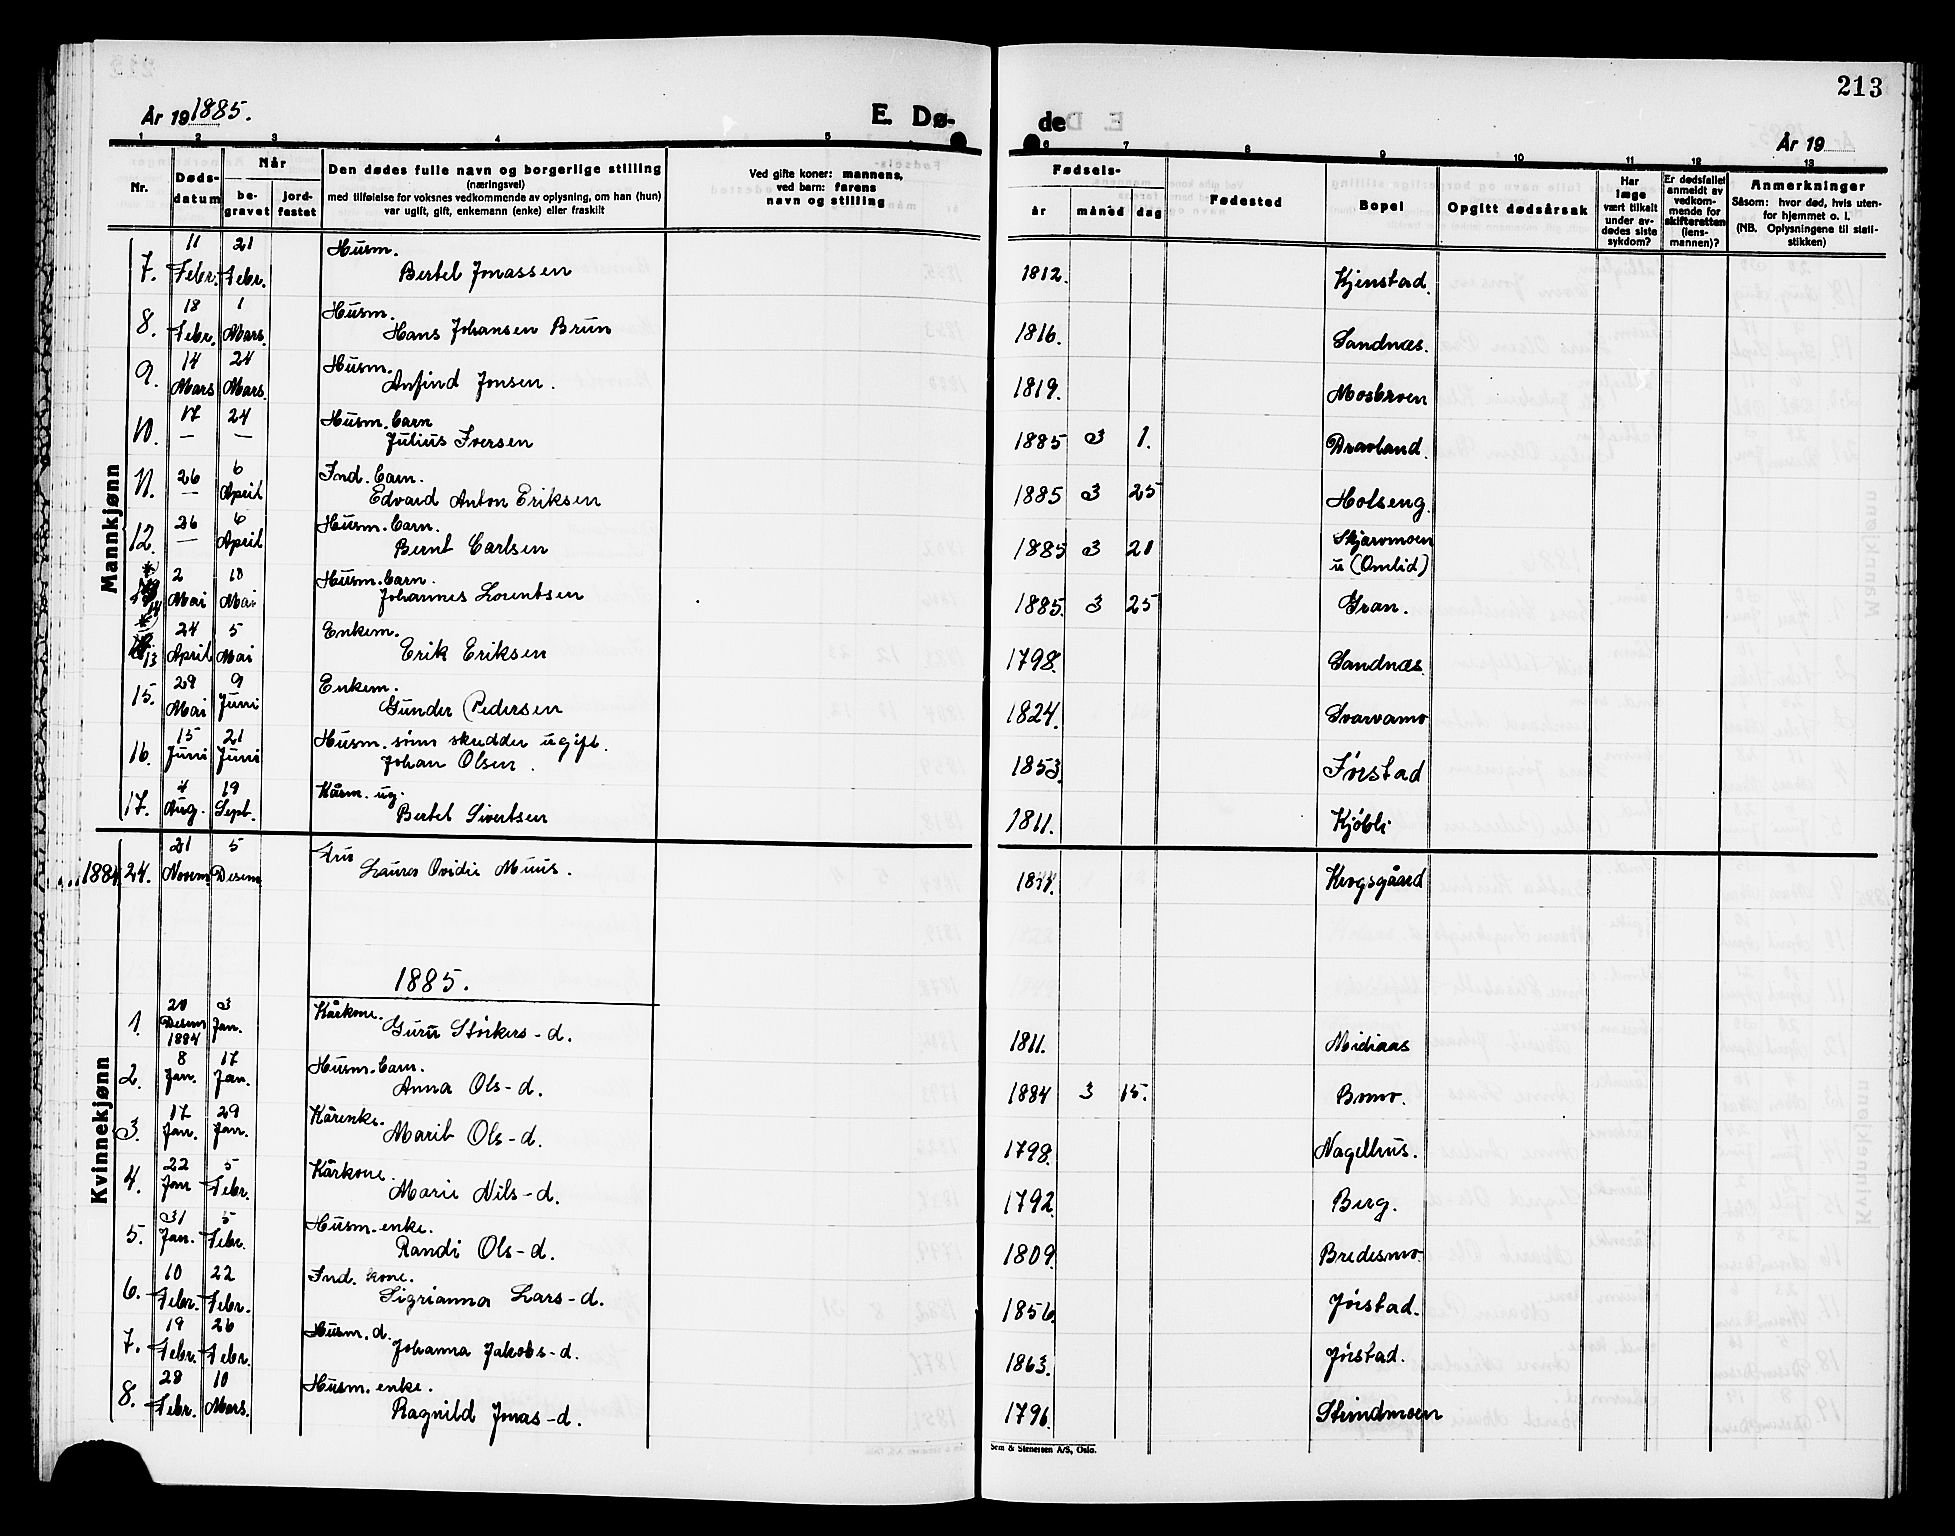 213
År 19 1885.
E. Dø-
de
År 19
1 2 3 4 5 6 7 8 9 10 11 12 13
Nr.
Døds-
datum
Når
be-
gravet
jord-
festet
Den dødes fulle navn og borgerlige stilling
(næringsvei)
med tilføielse for voksnes vedkommende av oplysning, om han (hun)
var ugift, gift, enkemann (enke) eller fraskilt
Ved gifte koner: mannens,
ved barn: farens
navn og stilling
Fødsels-
år måned dag
Fødested
Bopel
Opgitt dødsårsak
Har
læge
vært tilkalt
under av-
dødes siste
sykdom?
Er dødsfallet
anmeldt av
vedkom-
mende for
skifteretten
(lens-
mannen)?
Anmerkninger
Såsom: hvor død, hvis uten-
for hjemmet o. l.
(NB. Oplysningene til stati-
stikken)
Mannkjønn
7. 11 Febr. 21 Febr. Husm.
Bertel Jonassen 1812. Kjenstad.
8. 18 Febr. 1 Mars. Husm.
Hans Johansen Brun 1816. Sandnæs.
9. 14 Mars 24 Mars. Husm.
Anfind Jonsen. 1819. Mosbroen
10. 17 — 24 — Husm. barn
Julius Iversen 1885 3 1. Dravland.
11. 26 — 6 April Ind. barn.
Edvard Anton Eriksen 1885 3 25 Holseng.
12. 26 — 6 April Husm. barn.
Bernt Carlsen 1885 3 20 Skjæromoen
u (Omlid)
14 2 Mai 18 Mai Husm. barn.
Johannes Lorentsen 1885. 3 25 Gran.
13 24 April 5 Mai Enkem.
Erik Eriksen 1798. Sandnæs
15. 29 Mai 9 Juni Enkem.
Gunder Pedersen 1824. Svarvamo
16. 15 Juni 21 Juni Husm. sønn skredder ugift.
Johan Olsen. 1853. Førstad
17. 4 Aug. 19 Sept. Kårm. ug.
Bertel Sivertsen 1811. Kjøbli
Kvinnekjønn
1884 24. 21 Novem. 5 Desem Fru
Laura Ovidie Muus. 1844. Krogsgård
1885.
1. 20 Desem 1884 3 Jan. Kårkone.
Guru Størkers-d. 1811. Midiaas
2. 8 Jan. 17 Jan. Husm. barn.
Anna Ols-d. 1884 3 15. Bomo.
3. 17 Jan. 29 Jan. Kårenke.
Marit Ols-d. 1798. Nagelhus.
4. 22 Jan 5 Febr. Kårkone.
Marie Nils-d. 1792. Berg.
5. 31 Jan. 5 Febr. Husm. enke.
Randi Ols-d. 1809. Bredesmo.
6. 10 Febr. 22 Febr. Ind. kone.
Sigrianna Lars-d. 1856. Jørstad.
7. 19 Febr. 26 Febr. Husm. d.
Johanna Jakobs-d. 1863. Jørstad.
8. 28 Febr. 10 Mars. Husm. enke.
Ragnild Jonas-d. 1796. Strindmoen
Sem & Stenersen A/S, Oslo.